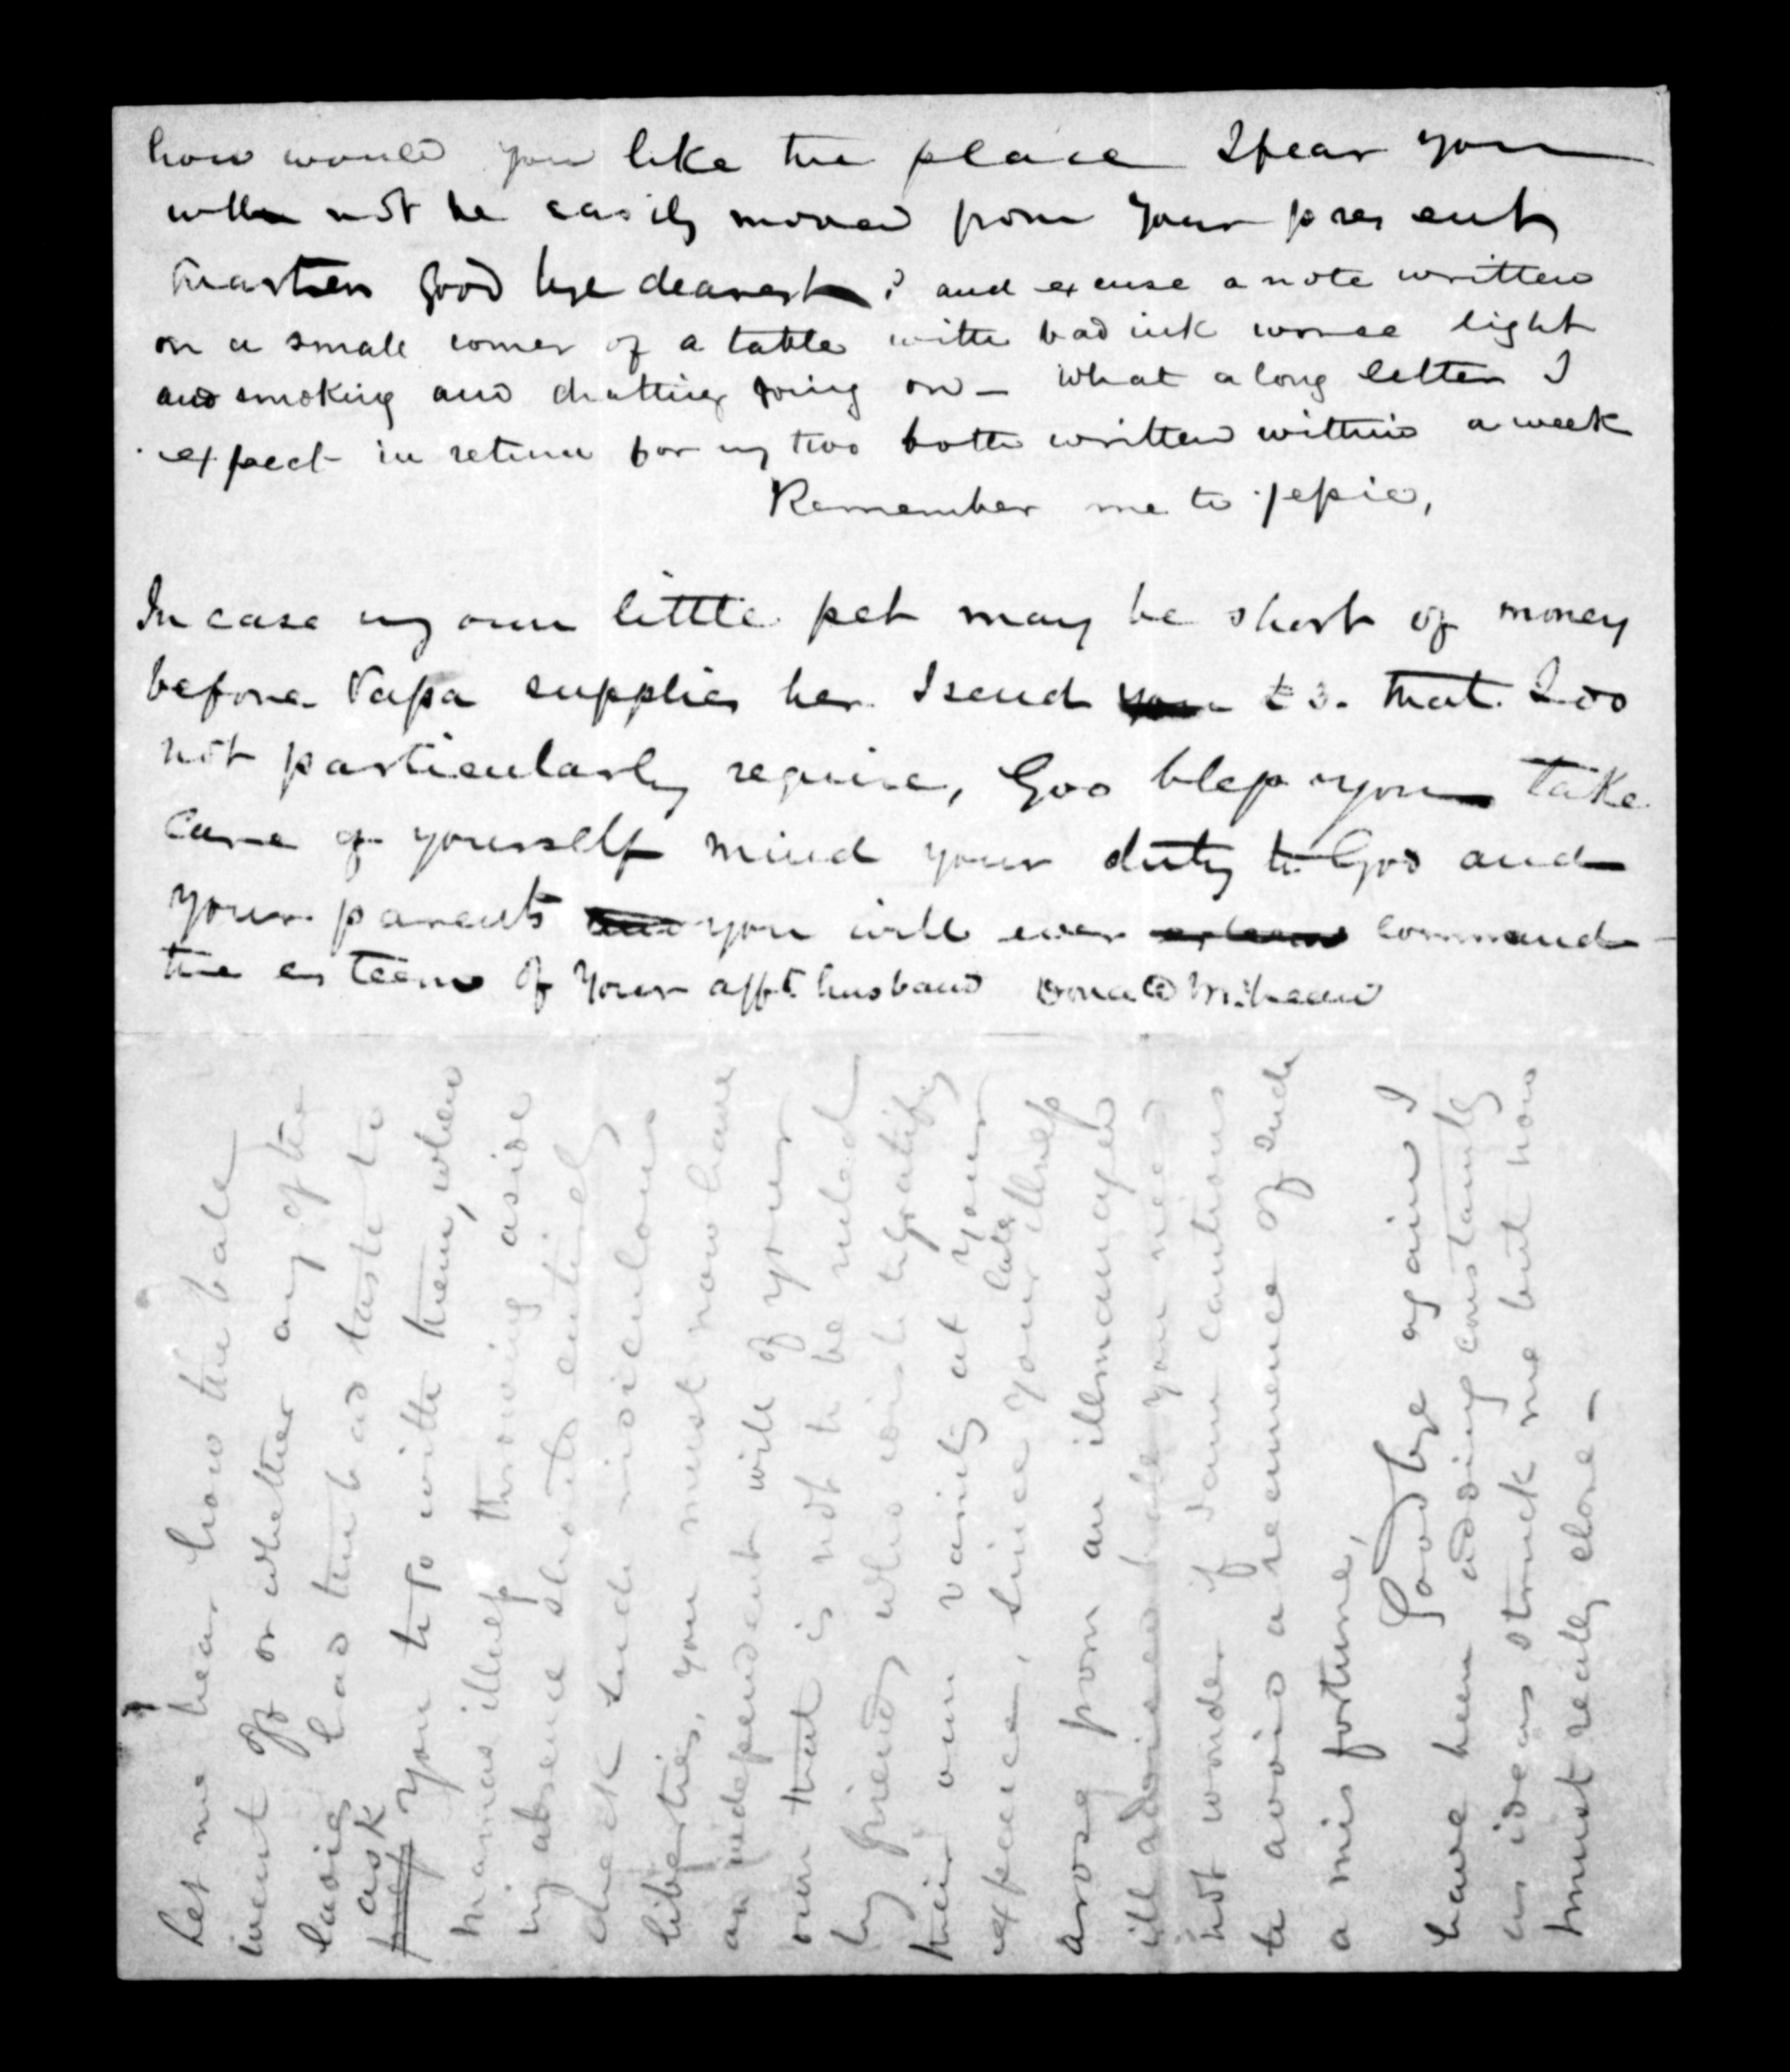 how would you like the place I fear you
will not be easily moved from your present
quarters good bye dearest & and excuse a note written
on a small corner of a table with bad ink worse light
and smoking and chatting going on — What a long letter I
expect in return for my two both written within a week
Remember me to Jessie,
In case my own little pet may be short of money
before Papa supplies her I send you £3. that I do
not particularly require, God bless you take
care of yourself mind your duty to God and
your parents and you will ever esteem command
the esteem of your afft. husband Donald McLean
Let me hear how the ball
went off or whether any of the
ladies had the bad taste to
ask
press you to go with them, when
Mamas illness throwing aside
my absence should entirely
check such ridiculous
liberties, you must now have
an independent will of your
own that is not to be ruled
by friends who wish to gratify
their own vanity at your
expence, since your late illness
arose from an illmanaged
ill advised ball you need
not wonder if I am cautious
to avoid a recurrence of such
a misfortune,
Good bye again I
have been adding constantly
as ideas struck me but now
must really close —